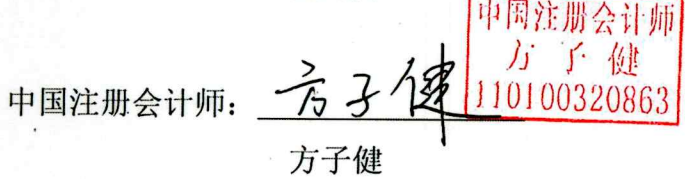 中国注册会计师
方子健
110100320863
中国注册会计师：方子健
方子健